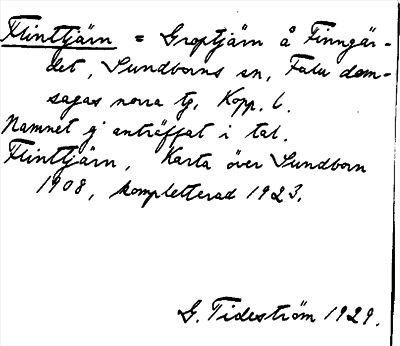 Flinttjärn = Groptjärn å Finngär-
det, Sundborns sn, Falu dom-
sagas norra tg, Kopp. l.
Namnet ej anträffat i tal.
Flinttjärn, Karta över Sundborn
1908, kompletterad 1923.
G. Tideström 1929.